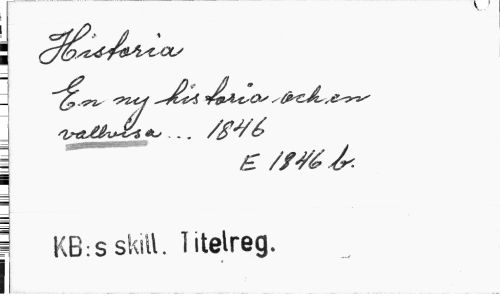 Historia
En ny historia och en
vallvisa... 1846
E 1846 b.
KB:s skill. Titelreg.